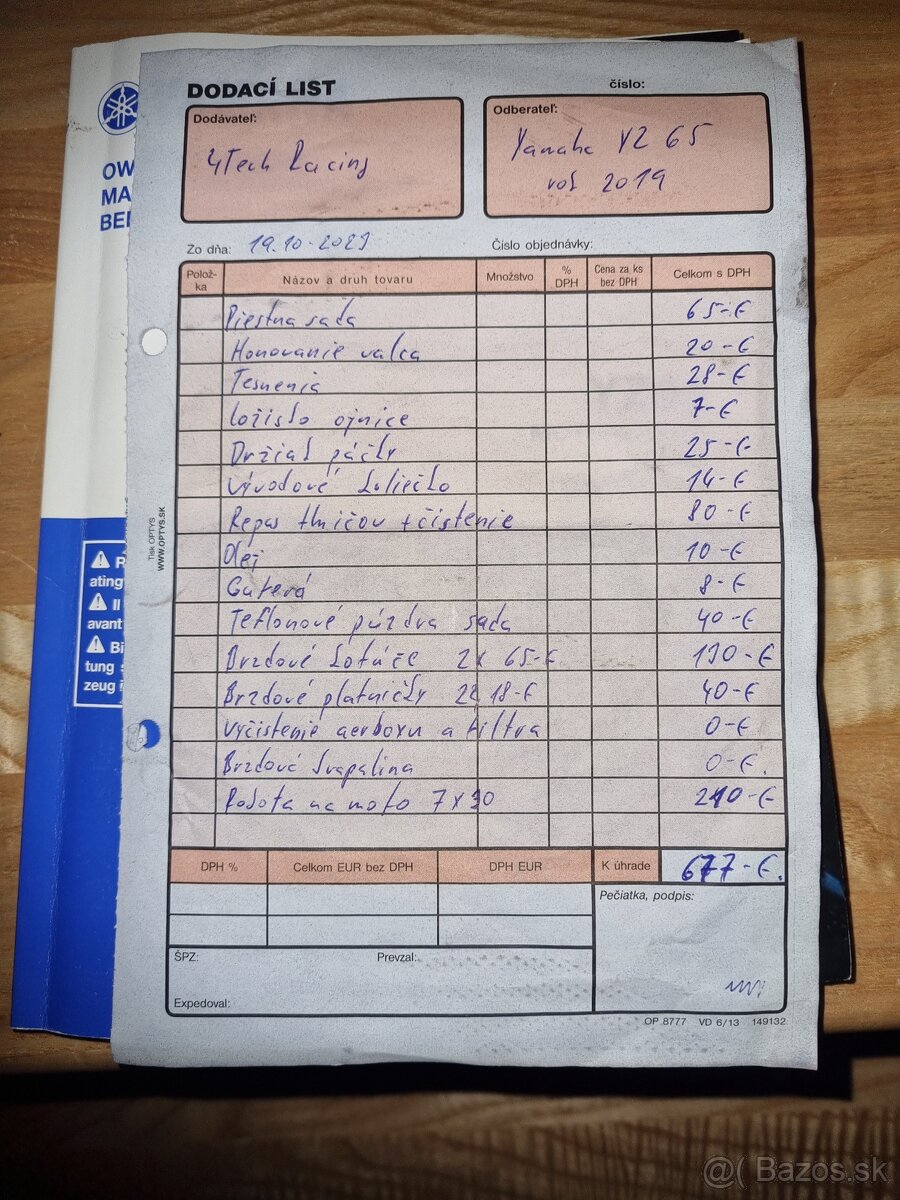 OW
MA
BE
R
ating
Il
avant
Bi
tung
zeug
DODACÍ LIST
číslo:
Dodávateľ:
4Tech Racing
Odberateľ:
Yamaha YZ 65
rok 2019
Zo dňa: 19.10.2021
Číslo objednávky:
Polož-ka Názov a druh tovaru Množstvo % DPH Cena za ks bez DPH Celkom s DPH
Piestna sada 65-€
Honovanie valca 20-€
Tesnenia 28-€
Ložisko ojnice 7-€
Držiak páčky 25-€
Vývodové koliečko 14-€
Repas tlmičov + čistenie 80-€
Olej 10-€
Guferá 8-€
Teflonové púzdra sada 40-€
Brzdové kotúče 2x 65-€ 130-€
Brzdové platničky 2x 18-€ 40-€
Vyčistenie aerboxu a filtra 0-€
Brzdová kvapalina 0-€.
Robota na moto 7x30 210-€
DPH % Celkom EUR bez DPH DPH EUR K úhrade 677-€.
Pečiatka, podpis:
ŠPZ: Prevzal:
Expedoval:
OP 8777 VD 6/13 149132
Tlsk OPTYS
WWW.OPTYS.SK
@( Bazos.sk